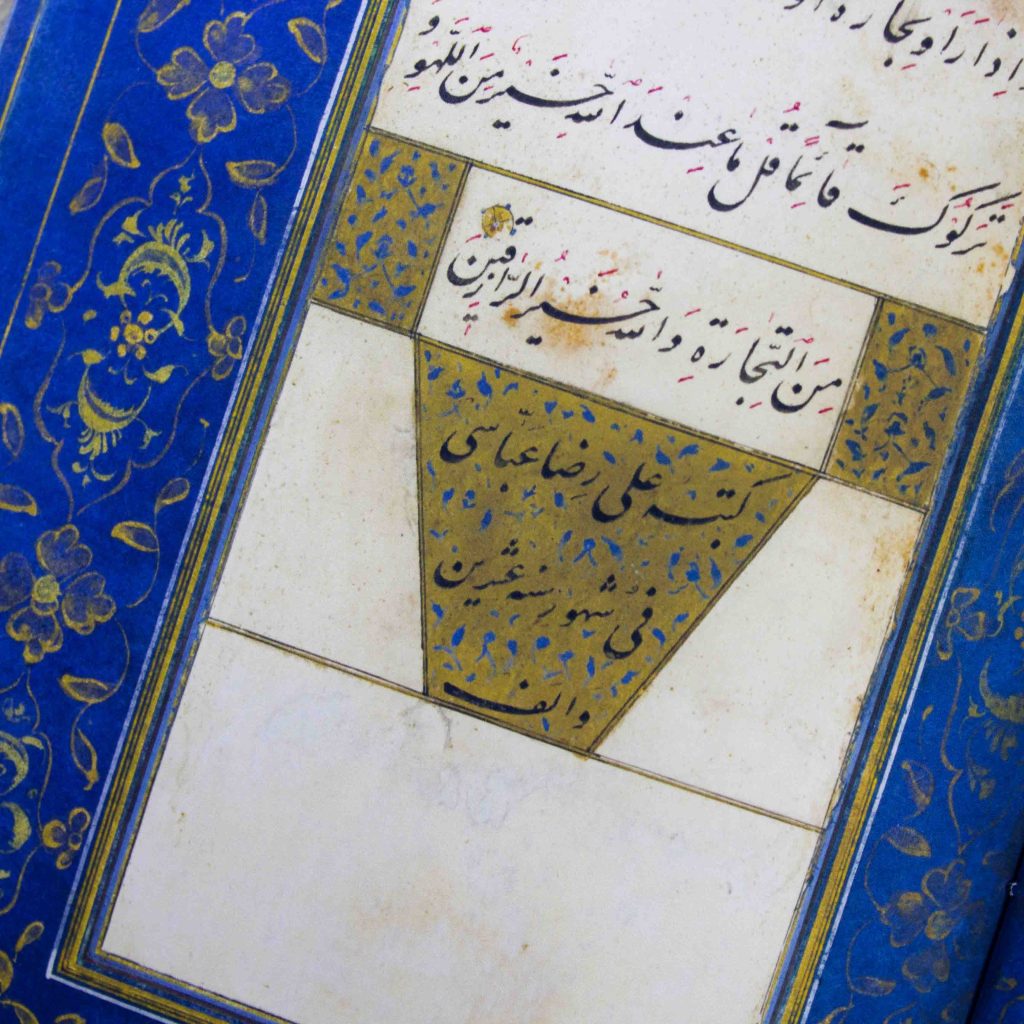 وَاِذَا رَاَوْ تِجَارَةً اَوْ
تَرَكُوكَ قَآئِمًا قُلْ مَا عِنْدَ اللّٰهِ خَيْرٌ مِنَ اللَّهْوِ وَ
مِنَ التِّجَارَةِ وَاللّٰهُ خَيْرُ الرَّازِقِينَ
كتبه علی رضا عبّاسی
فی شهور سنه عشرین
والف